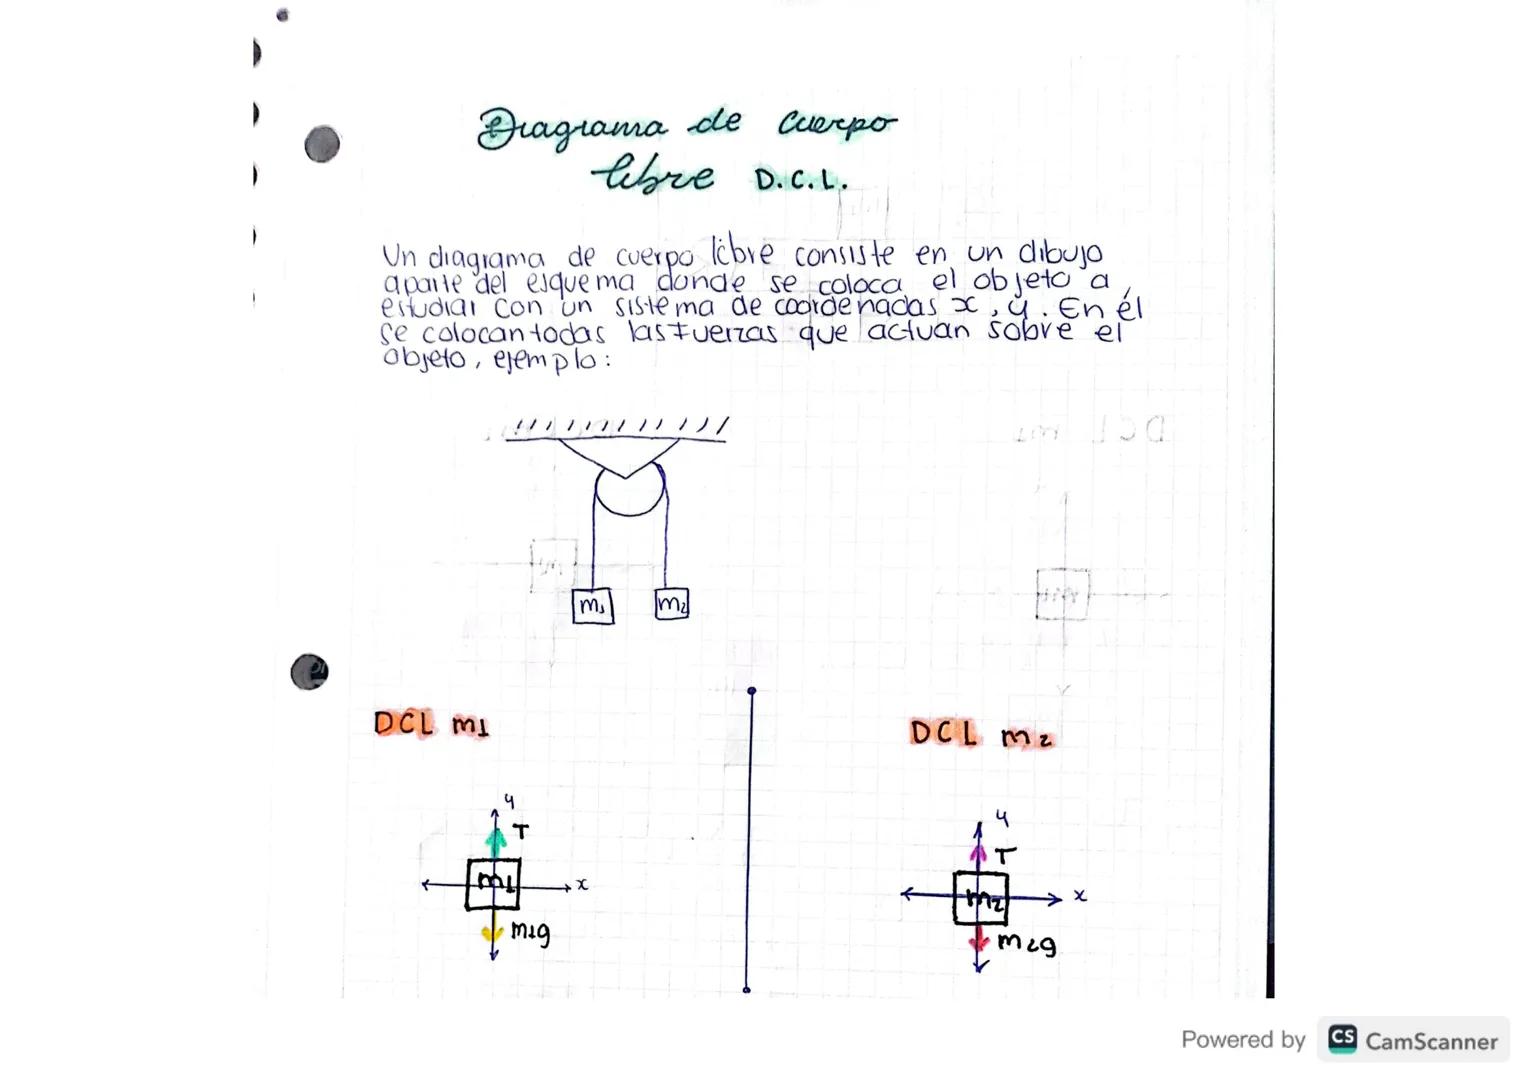 Diagrama de cuerpo
libre D.C.L.
Un diagrama de cuerpo libre consiste en un dibujo
aparte del esquema donde se coloca el objeto a
estudiar con un sistema de coordenadas x, y. En él
se colocan todas las fuerzas que actuan sobre el
objeto, ejemplo:
m1 m2
DCL m1
DCL m2
y
T
m1
x
m1g
y
T
m2
x
m2g
Powered by CS CamScanner